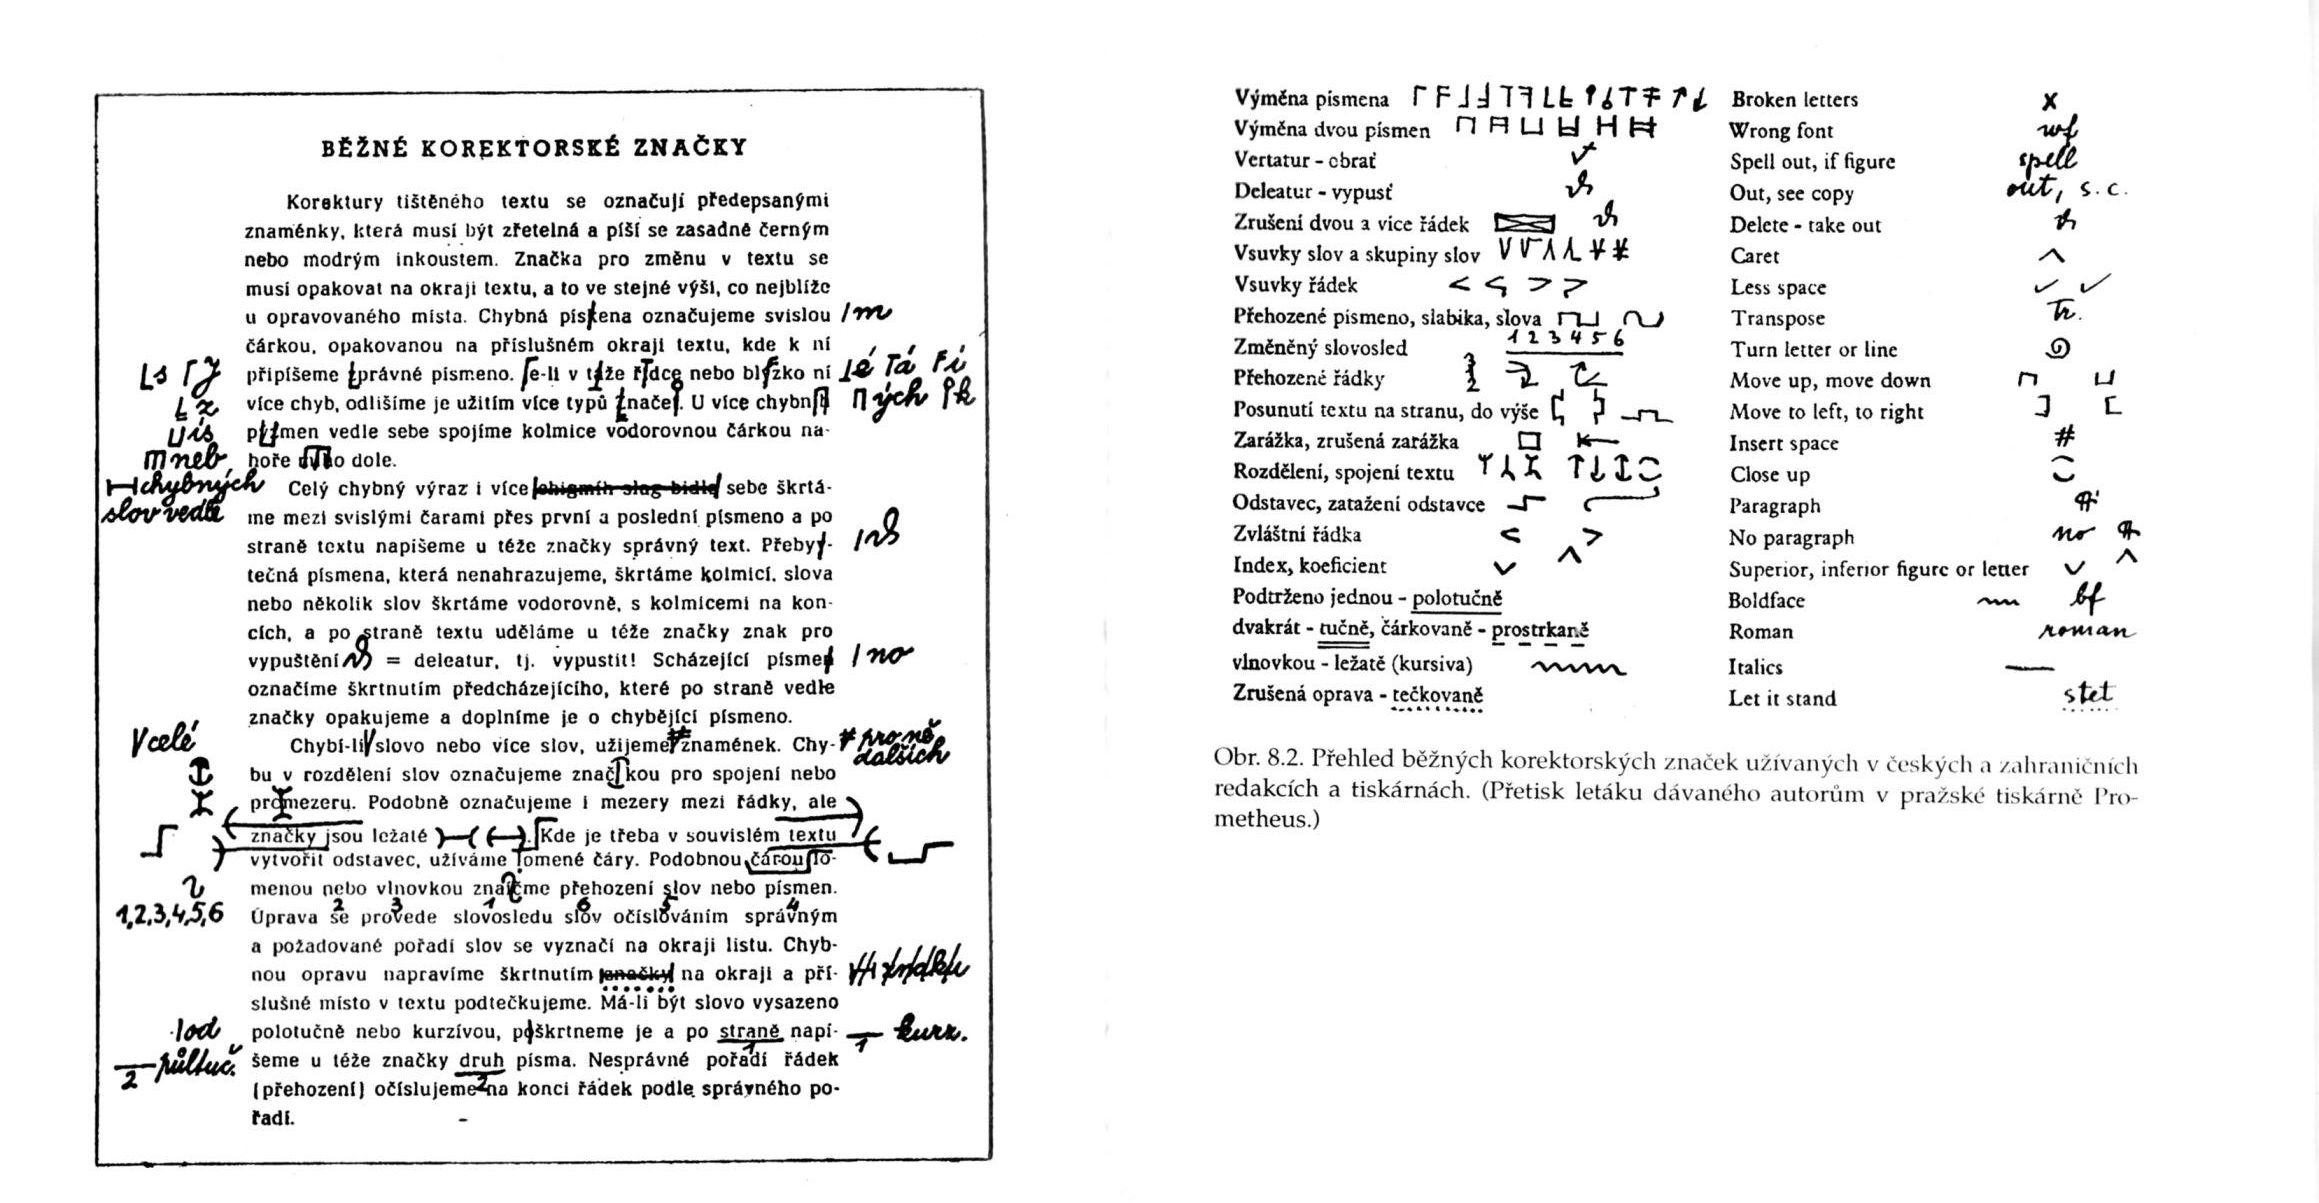 BĚŽNÉ KOREKTORSKÉ ZNAČKY
Korektury tištěného textu se označují předepsanými
znaménky, která musí být zřetelná a píší se zasadně černým
nebo modrým inkoustem. Značka pro změnu v textu se
musí opakovat na okraji textu, a to ve stejné výši, co nejblíže
u opravovaného místa. Chybná pís ena označujeme svislou /m
čárkou, opakovanou na příslušném okraji textu, kde k ní
připíšeme právné písmeno. e-li v t že ř dce nebo bl zko ní
více chyb, odlišíme je užitím více typů nače . U více chybn
p men vedle sebe spojíme kolmice vodorovnou čárkou na-
hoře o dole.
ých
k
z
ís
neb
chybných
slov vedle
Celý chybný výraz i více sebe škrtá-
me mezi svislými čarami přes první a poslední písmeno a po
straně textu napíšeme u téže značky správný text. Přeby -
tečná písmena, která nenahrazujeme, škrtáme kolmicí, slova
nebo několik slov škrtáme vodorovně, s kolmicemi na kon-
cích, a po straně textu uděláme u téže značky znak pro
vypuštění = deleatur, tj. vypustit! Scházející písme /no
označíme škrtnutím předcházejícího, které po straně vedle
značky opakujeme a doplníme je o chybějící písmeno.
Chybí-li slovo nebo více slov, užijeme znamének. Chy-
celé
pro ně
dalších
bu v rozdělení slov označujeme znač kou pro spojení nebo
pro mezeru. Podobně označujeme i mezery mezi řádky, ale
značky jsou ležaté . Kde je třeba v souvislém textu
vytvořit odstavec, užíváme lomené čáry. Podobnou čárou lo-
menou nebo vlnovkou značíme přehození slov nebo písmen.
2 3 1 6 5 4
1,2,3,4,5,6 Úprava se provede slovosledu slov očíslováním správným
a požadované pořadí slov se vyznačí na okraji listu. Chyb-
nou opravu napravíme škrtnutím značky na okraji a pří-
slušné místo v textu podtečkujeme. Má-li být slovo vysazeno
polotučně nebo kurzívou, po škrtneme je a po straně napí- 1 kurz.
šeme u téže značky druh písma. Nesprávné pořadí řádek
2 půltuč.
(přehození) očíslujeme na konci řádek podle správného po-
řadí.
Výměna písmena
Výměna dvou písmen
Vertatur - obrať
Deleatur - vypusť
Zrušení dvou a více řádek
Vsuvky slov a skupiny slov
Vsuvky řádek < >
Přehozené písmeno, slabika, slova
Změněný slovosled 1 2 3 4 5 6
Přehozené řádky
Posunutí textu na stranu, do výše
Zarážka, zrušená zarážka
Rozdělení, spojení textu
Odstavec, zatažení odstavce
Zvláštní řádka < >
Index, koeficient
Podtrženo jednou - polotučně
dvakrát - tučně, čárkovaně - prostrkaně
vlnovkou - ležatě (kursiva)
Zrušená oprava - tečkovaně
Broken letters x
Wrong font wf
Spell out, if figure spell
Out, see copy out, s.c.
Delete - take out
Caret
Less space
Transpose tr.
Turn letter or line
Move up, move down
Move to left, to right ] [
Insert space #
Close up
Paragraph
No paragraph no
Superior, inferior figure or letter
Boldface bf
Roman roman
Italics
Let it stand stet
Obr. 8.2. Přehled běžných korektorských značek užívaných v českých a zahraničních
redakcích a tiskárnách. (Přetisk letáku dávaného autorům v pražské tiskárně Pro-
metheus.)